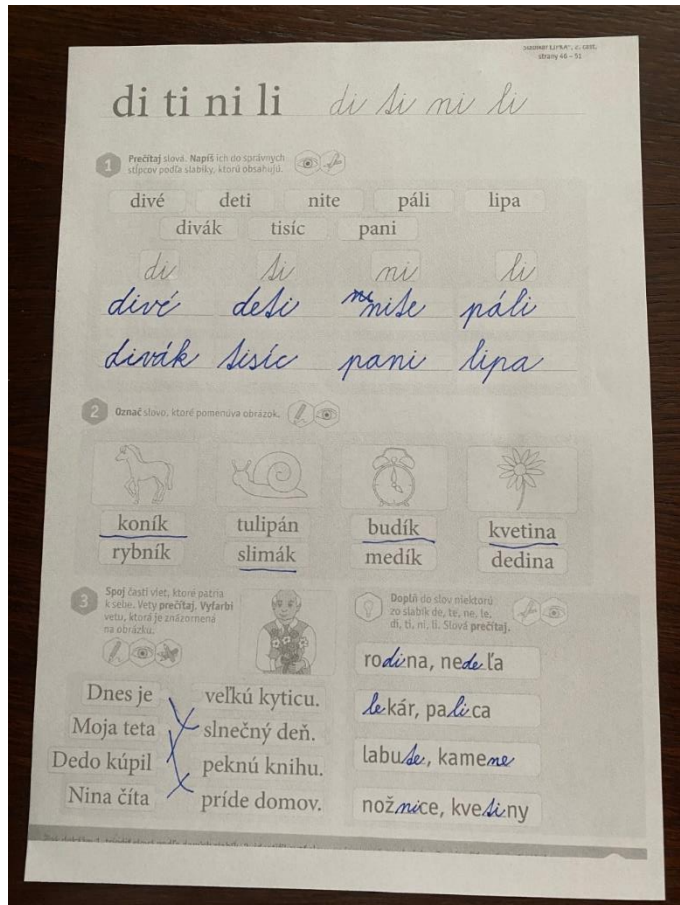 Šlabikár LIPKA®, 2. časť,
strany 46 – 51
di ti ni li di ti ni li
1 Prečítaj slová. Napíš ich do správnych
stĺpcov podľa slabiky, ktorú obsahujú.
divé deti nite páli lipa
divák tisíc pani
di ti ni li
divé deti ni nite páli
divák tisíc pani lipa
2 Označ slovo, ktoré pomenúva obrázok.
koník tulipán budík kvetina
rybník slimák medík dedina
3 Spoj časti viet, ktoré patria
k sebe. Vety prečítaj. Vyfarbi
vetu, ktorá je znázornená
na obrázku.
Dnes je veľkú kyticu.
Moja teta slnečný deň.
Dedo kúpil peknú knihu.
Nina číta príde domov.
Doplň do slov niektorú
zo slabík de, te, ne, le,
di, ti, ni, li. Slová prečítaj.
rodina, nedeľa
lekár, palica
labute, kamene
nožnice, kvetiny